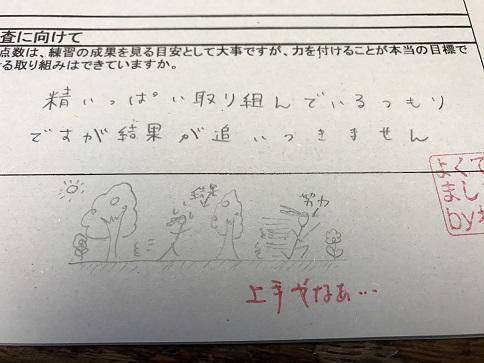 査に向けて
点数は、練習の成果を見る目安として大事ですが、力を付けることが本当の目標で
る取り組みはできていますか。
精いっぱい取り組んでいるつもり
ですが結果が追いつきません
結果
努力
よくで
まし
by
上手やなぁ…